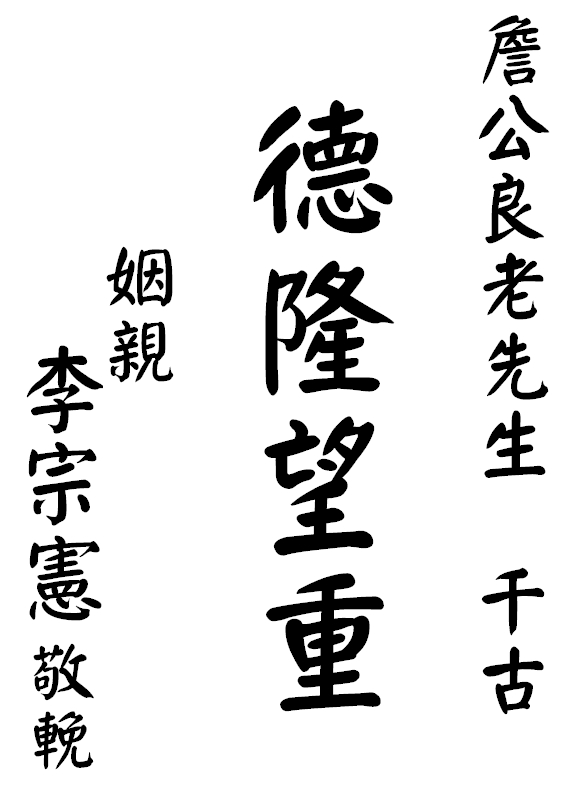 詹公良老先生 千古
德隆望重
姻親
李宗憲 敬輓